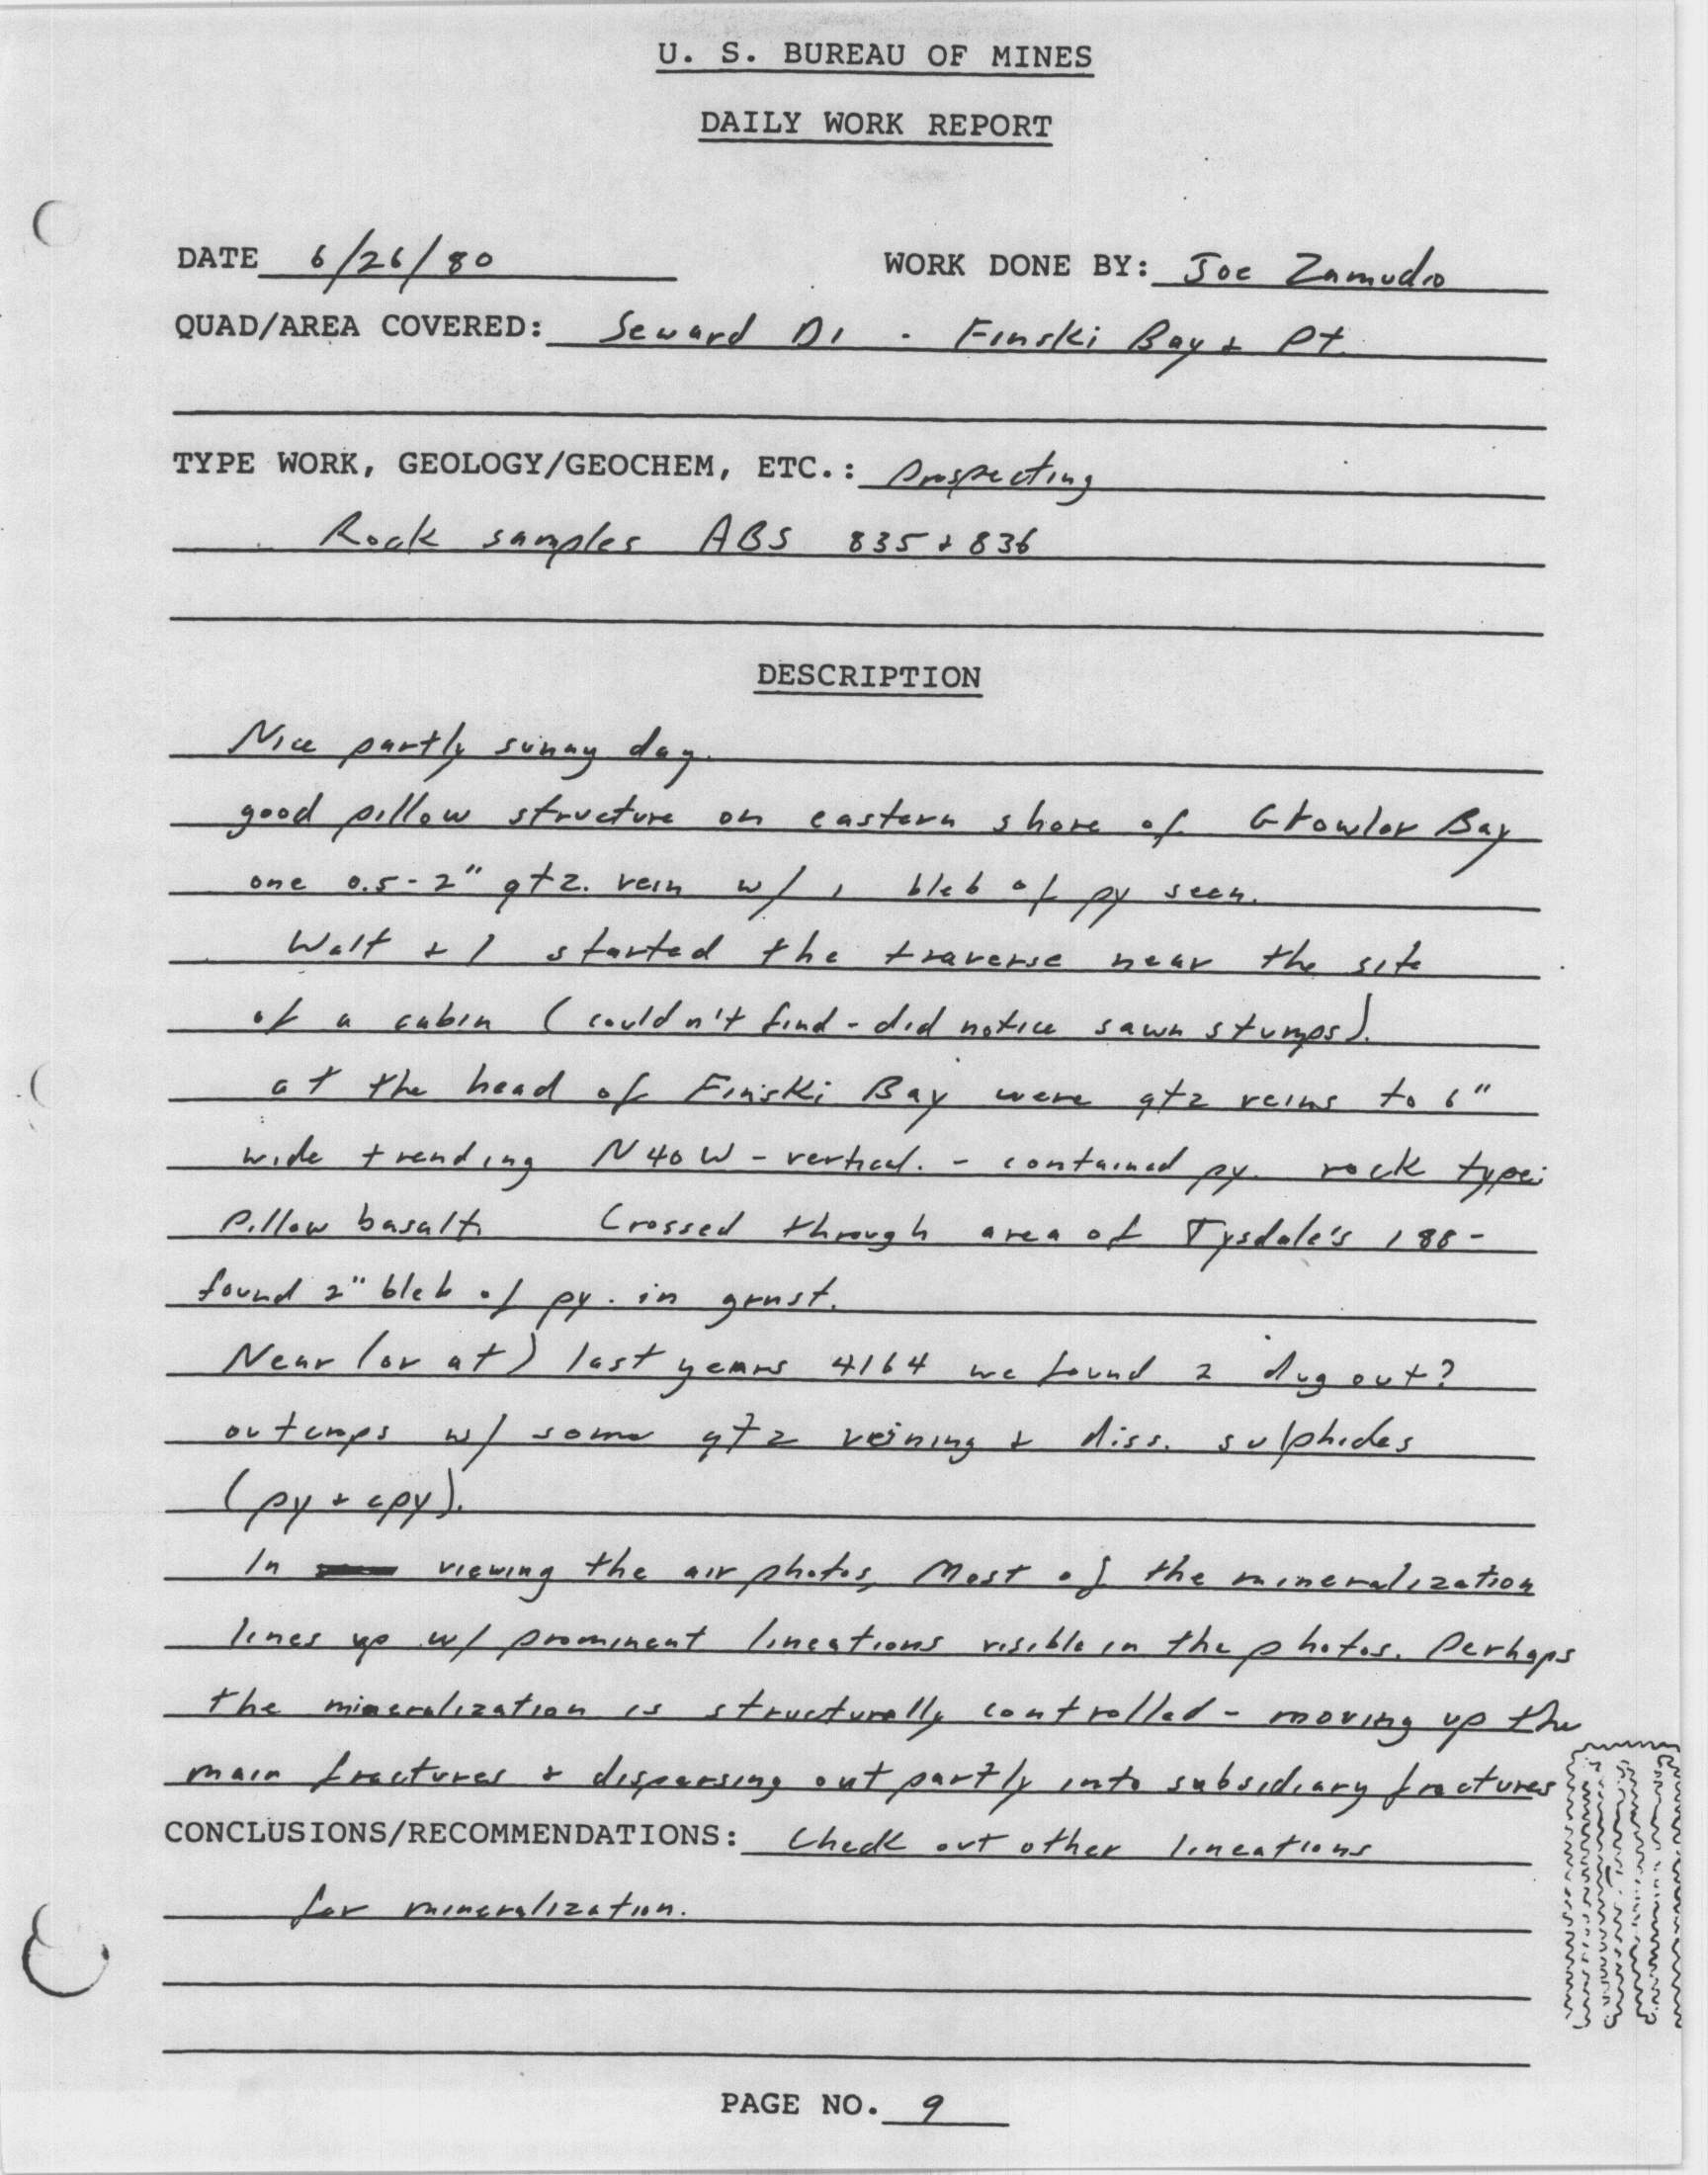 U. S. BUREAU OF MINES
DAILY WORK REPORT
DATE 6/26/80 WORK DONE BY: Joe Zamudio
QUAD/AREA COVERED: Seward D1 - Finski Bay & Pt.
TYPE WORK, GEOLOGY/GEOCHEM, ETC.: Prospecting
Rock samples ABS 835 & 836
DESCRIPTION
Nice partly sunny day.
good pillow structure on eastern shore of Growler Bay
one 0.5-2" qtz. vein w/ 1 bleb of py seen.
Walt & I started the traverse near the site
of a cabin (couldn't find - did notice sawn stumps).
at the head of Finski Bay were qtz veins to 6"
wide trending N40W - vertical. - contained py. rock type:
Pillow basalt Crossed through area of Tysdale's 188-
found 2" bleb of py. in grnst.
Near (or at) last years 4164 we found 2 dug out?
outcrops w/ some qtz veining & diss. sulphides
(py & cpy).
In viewing the air photos, Most of the mineralization
lines up w/ prominent lineations visible in the photos. Perhaps
the mineralization is structurally controlled - moving up the
main fractures & dispersing out partly into subsidiary fractures
CONCLUSIONS/RECOMMENDATIONS: Check out other lineations
for mineralization.
PAGE NO. 9